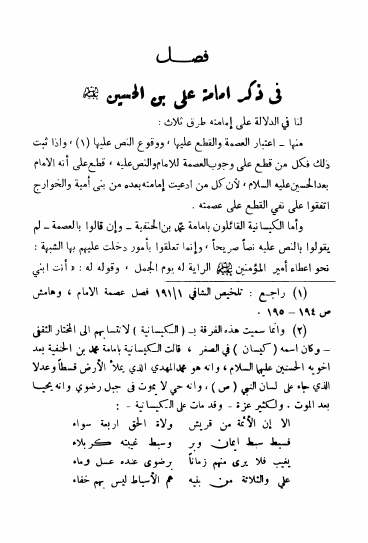 فصل
في ذكر امامة علي بن الحسين عليه السلام
لنا في الدلالة على إمامته طرق ثلاث :
منها - اعتبار العصمة والقطع عليها ، ووقوع النص عليها (١) ، واذا ثبت
ذلك فكل من قطع على وجوب العصمة للامام والنص عليه ، قطع على أنه الامام
بعد الحسين عليه السلام ، لأن كل من ادعيت إمامته بعده من بنى أمية والخوارج
اتفقوا على نفي القطع على عصمته .
وأما الكيسانية القائلون بامامة محمد بن الحنفية - وإن قالوا بالعصمة - لم
يقولوا بالنص عليه نصاً صريحاً ، وإنما تعلقوا بأمور دخلت عليهم بها الشبهة :
نحو اعطاء أمير المؤمنين عليه السلام الراية له يوم الجمل ، وقوله له : « أنت ابني
(١) راجع : تلخيص الشافي ١/١٩١ فصل عصمة الامام ، وهامش
ص ١٩٤ - ١٩٥ .
(٢) وانما سميت هذه الفرقة بـ (الكيسانية) لانتسابهم الى المختار الثقفي
- وكان اسمه (كيسان) في الصغر ، قالت الكيسانية بامامة محمد بن الحنفية بعد
اخويه الحسنين عليهما السلام ، وانه هو محمد المهدي الذي يملأ الأرض قسطاً وعدلا
الذي جاء على لسان النبي (ص) ، وانه حي لا يموت فى جبل رضوي وانه يحيا
بعد الموت . ولكثير عزة - وقد مات على الكيسانية - :
الا إن الأئمة من قريش ولاة الحق اربعة سواء
فسبط سبط ايمان وبر وسبط غيبته كربلاء
يغيب فلا يرى منهم زماناً برضوى عنده عسل وماء
علي والثلاثة من بنيه هم الأسباط ليس بهم خفاء